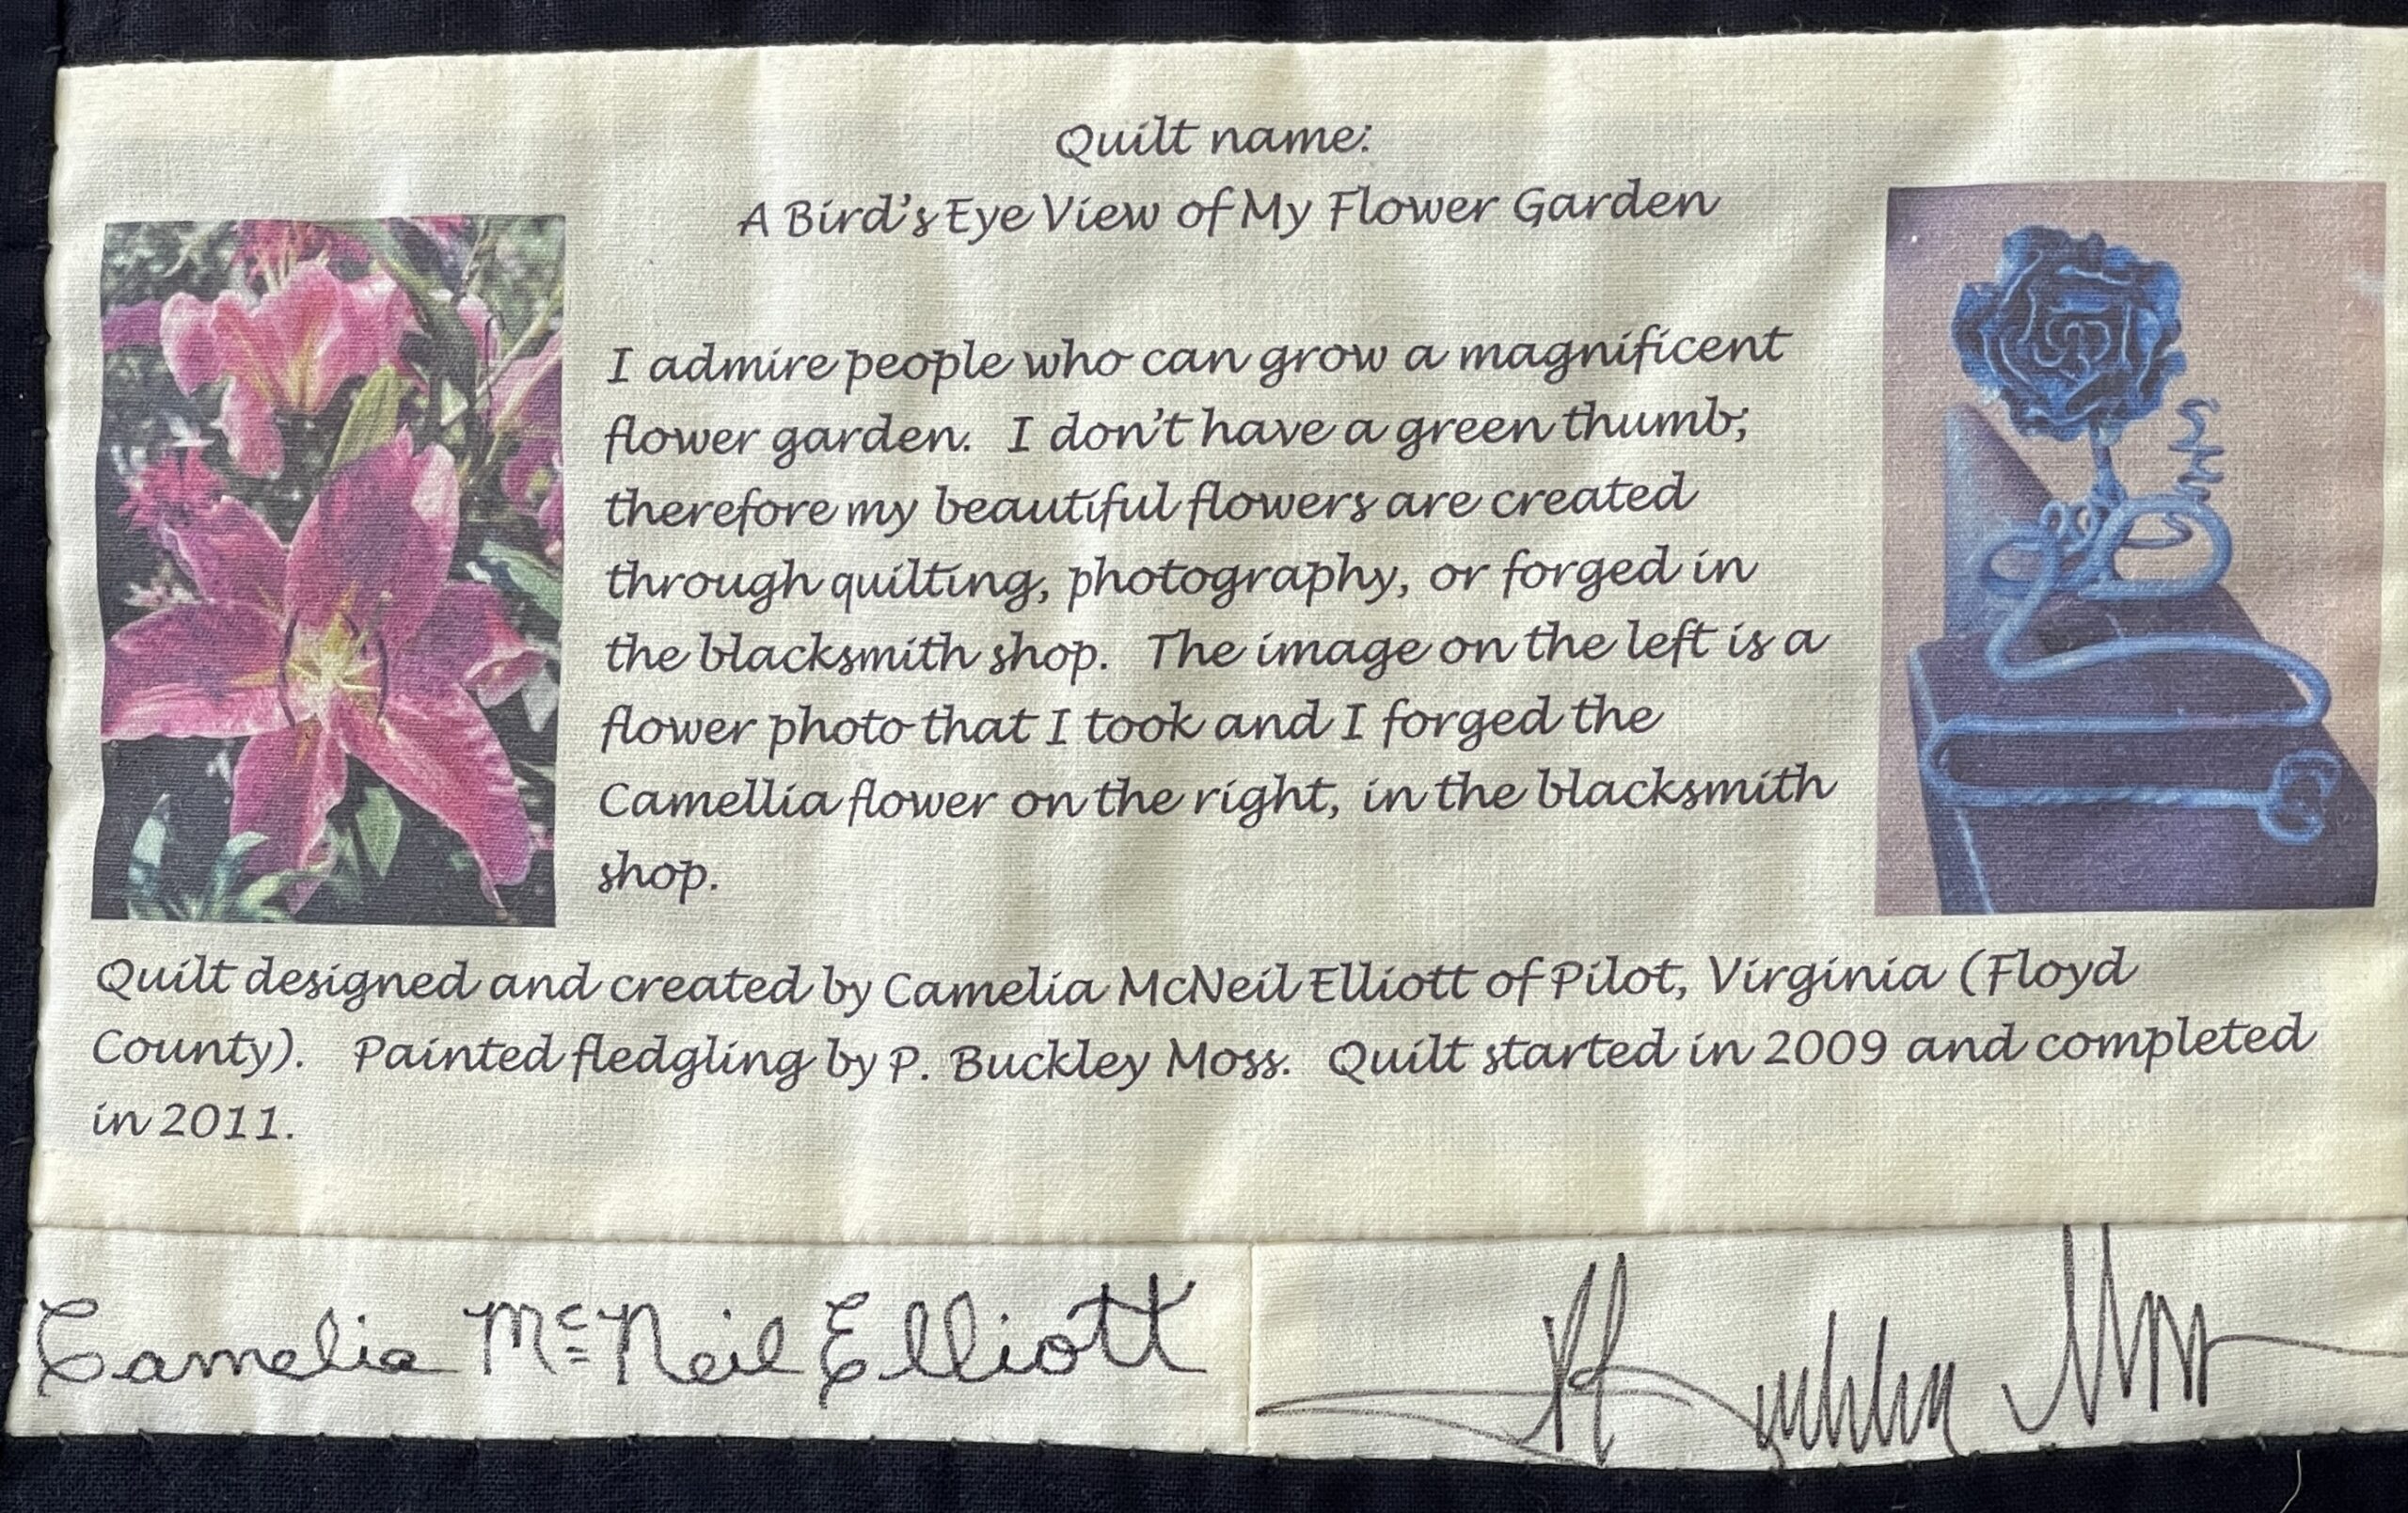 Quilt name:
A Bird's Eye View of My Flower Garden
I admire people who can grow a magnificent
flower garden. I don't have a green thumb;
therefore my beautiful flowers are created
through quilting, photography, or forged in
the blacksmith shop. The image on the left is a
flower photo that I took and I forged the
Camellia flower on the right, in the blacksmith
shop.
Quilt designed and created by Camelia McNeil Elliott of Pilot, Virginia (Floyd
County). Painted fledgling by P. Buckley Moss. Quilt started in 2009 and completed
in 2011.
Camelia McNeil Elliott
P Buckley Moss